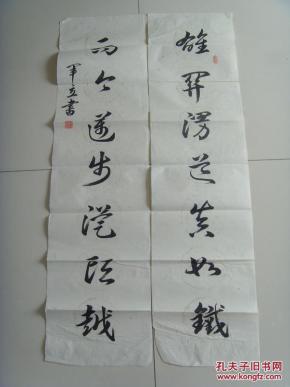 雄关漫道真如铁
而今迈步从头越
军立书
孔夫子旧书网
www.kongfz.com